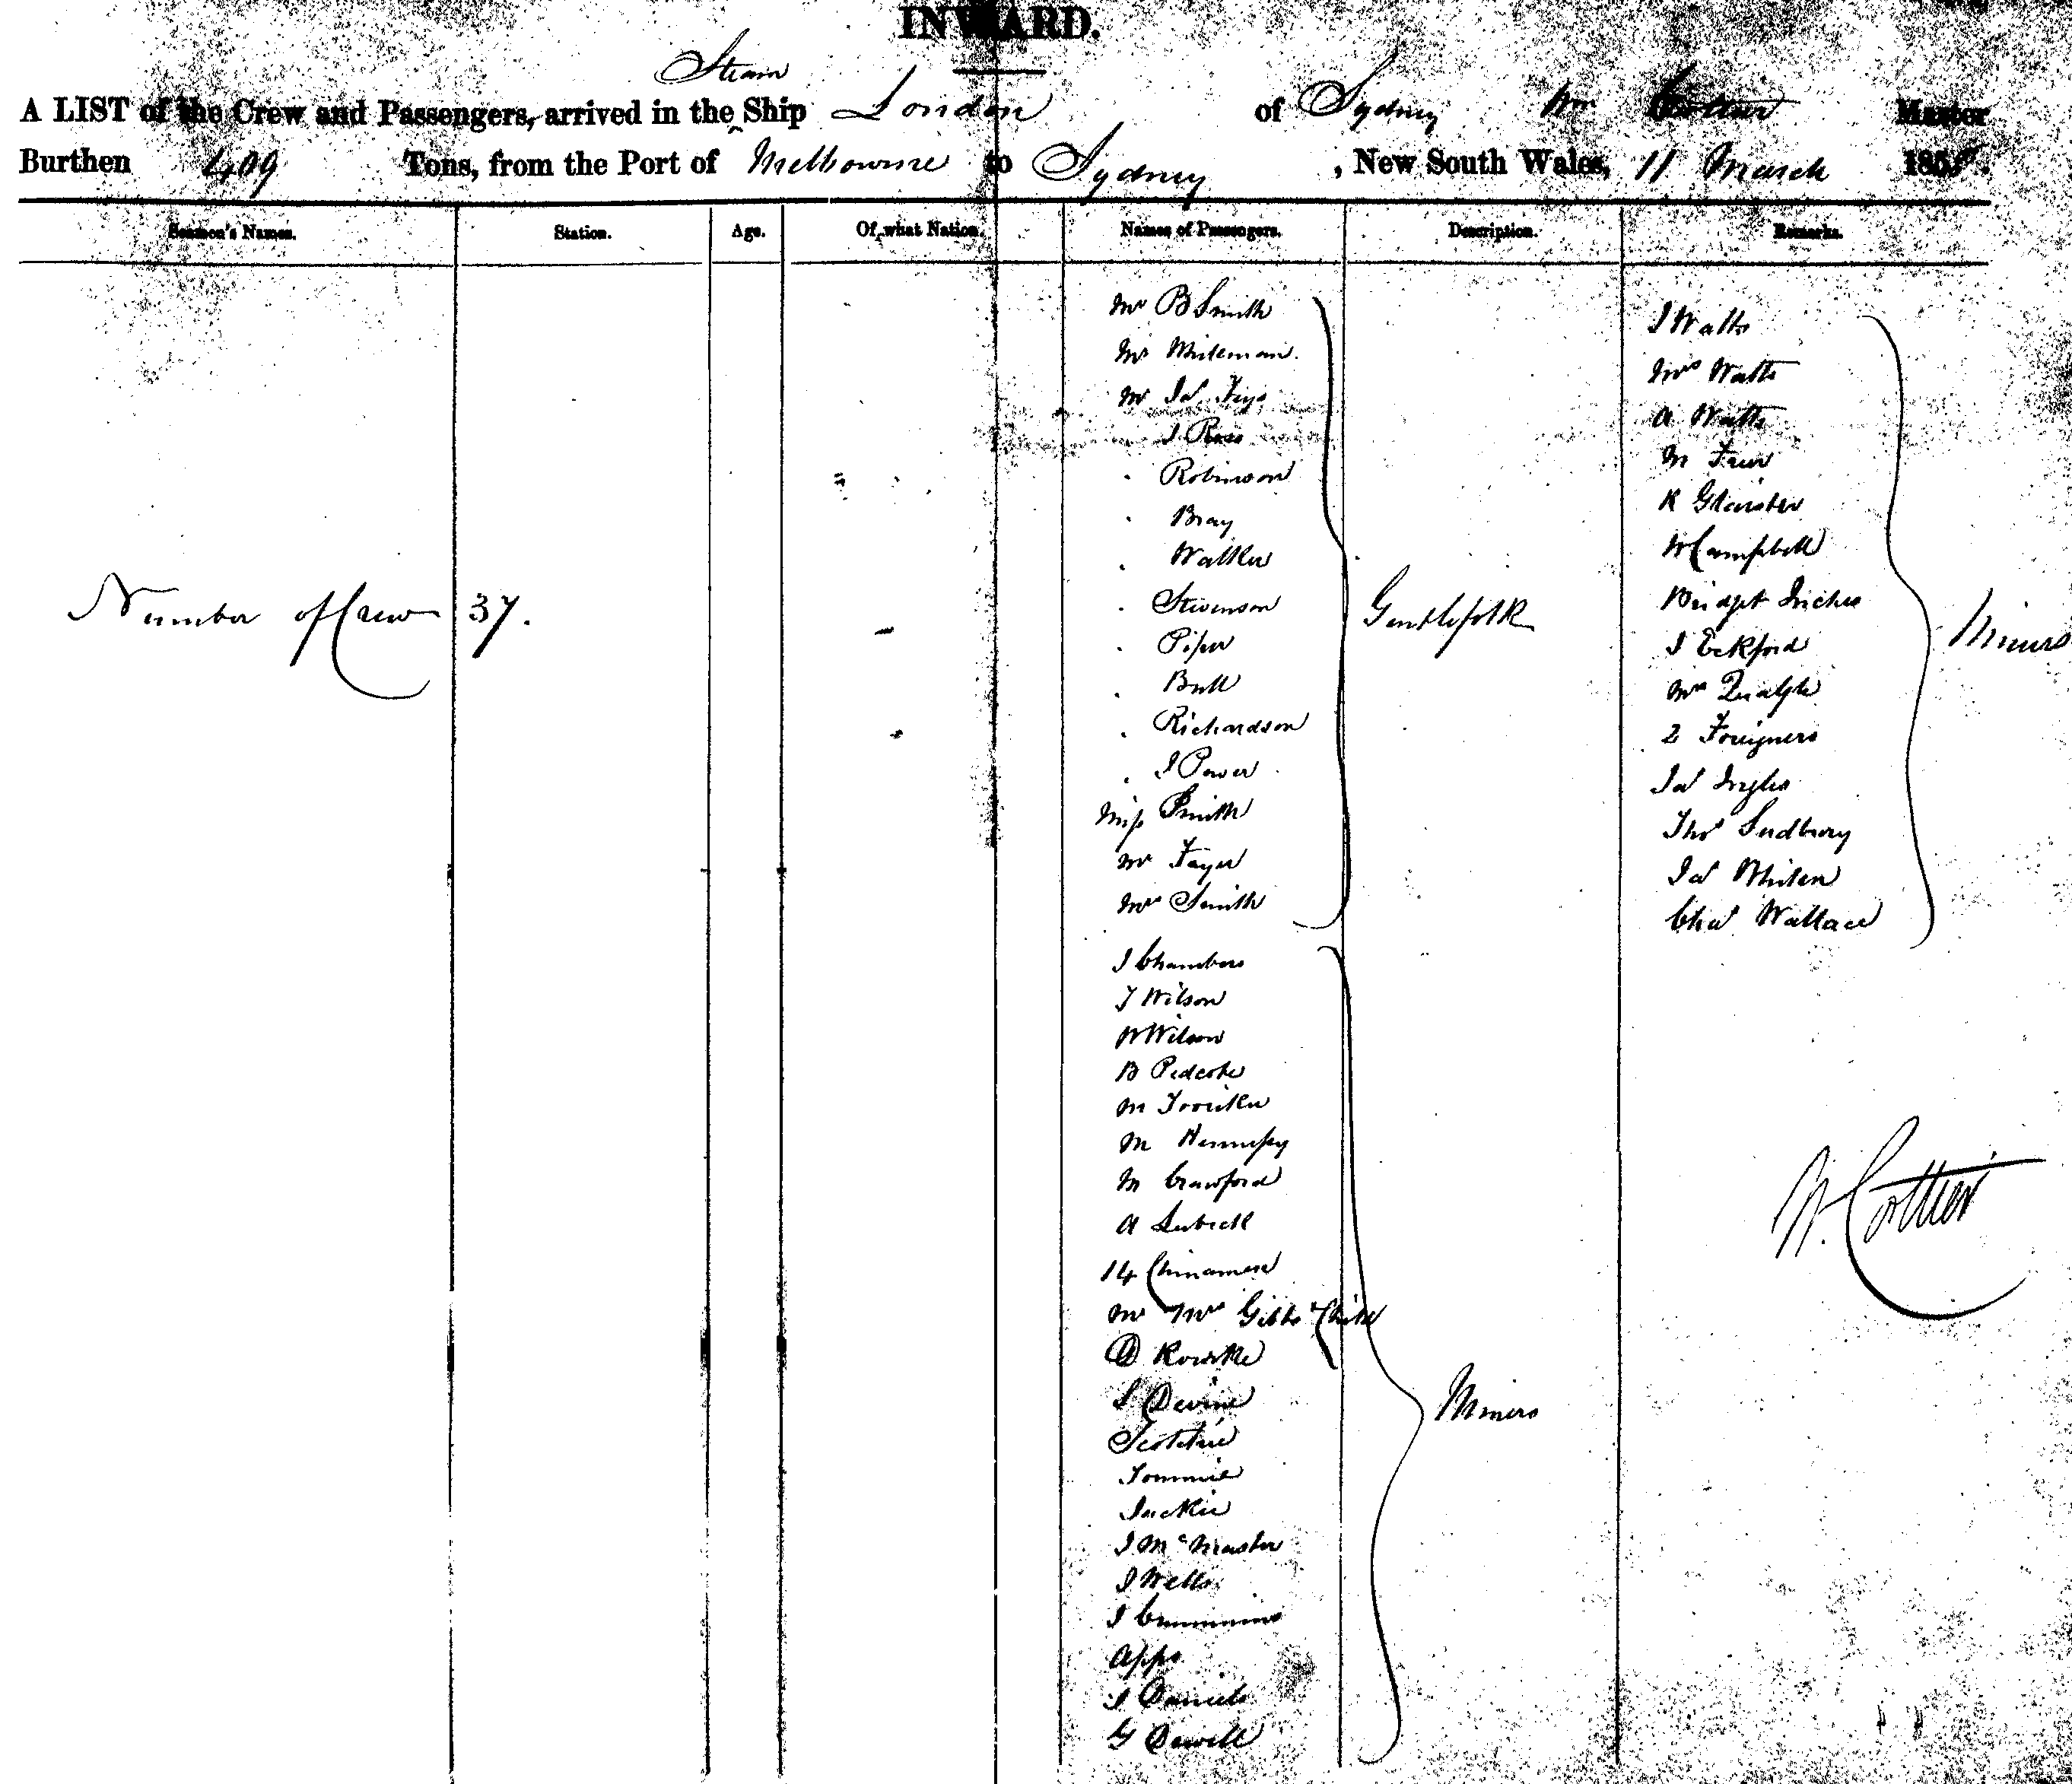 INWARD.
Steam
A LIST of the Crew and Passengers, arrived in the Ship London of Sydney Wm Cottier Master
Burthen 409 Tons, from the Port of Melbourne to Sydney, New South Wales, 11 March 185
Seamen's Names. Station. Age. Of what Nation. Names of Passengers. Description. Remarks.
Number of Crew 37.
Mr B Smith
Mr Whiteman
Mr Jas
J Ross
Robinson
Bray
Walker
Stevenson
Piper
Bull
Richardson
J Power
Miss Smith
Mr Fayer
Mrs Smith
Gentlefolk
J Chambers
T Wilson
W Wilson
B
M
M Hennessy
M Crawford
A Lubeck
14 Chinamen
Mr Mrs Gibbs Child
D Rourke
J Devine
Tommie
Jackie
J McMaster
J Wells
J Cummins
Apps
J Daniels
G
Miners
J Watts
Mrs Watts
A Watts
M
R Glaister
W Campbell
Bridget Inches
J Eckford
Mrs
2 Foreigners
Jas Ingles
Thos Sudbury
Jas Whiten
Chas Wallace
Miners
W. Cottier